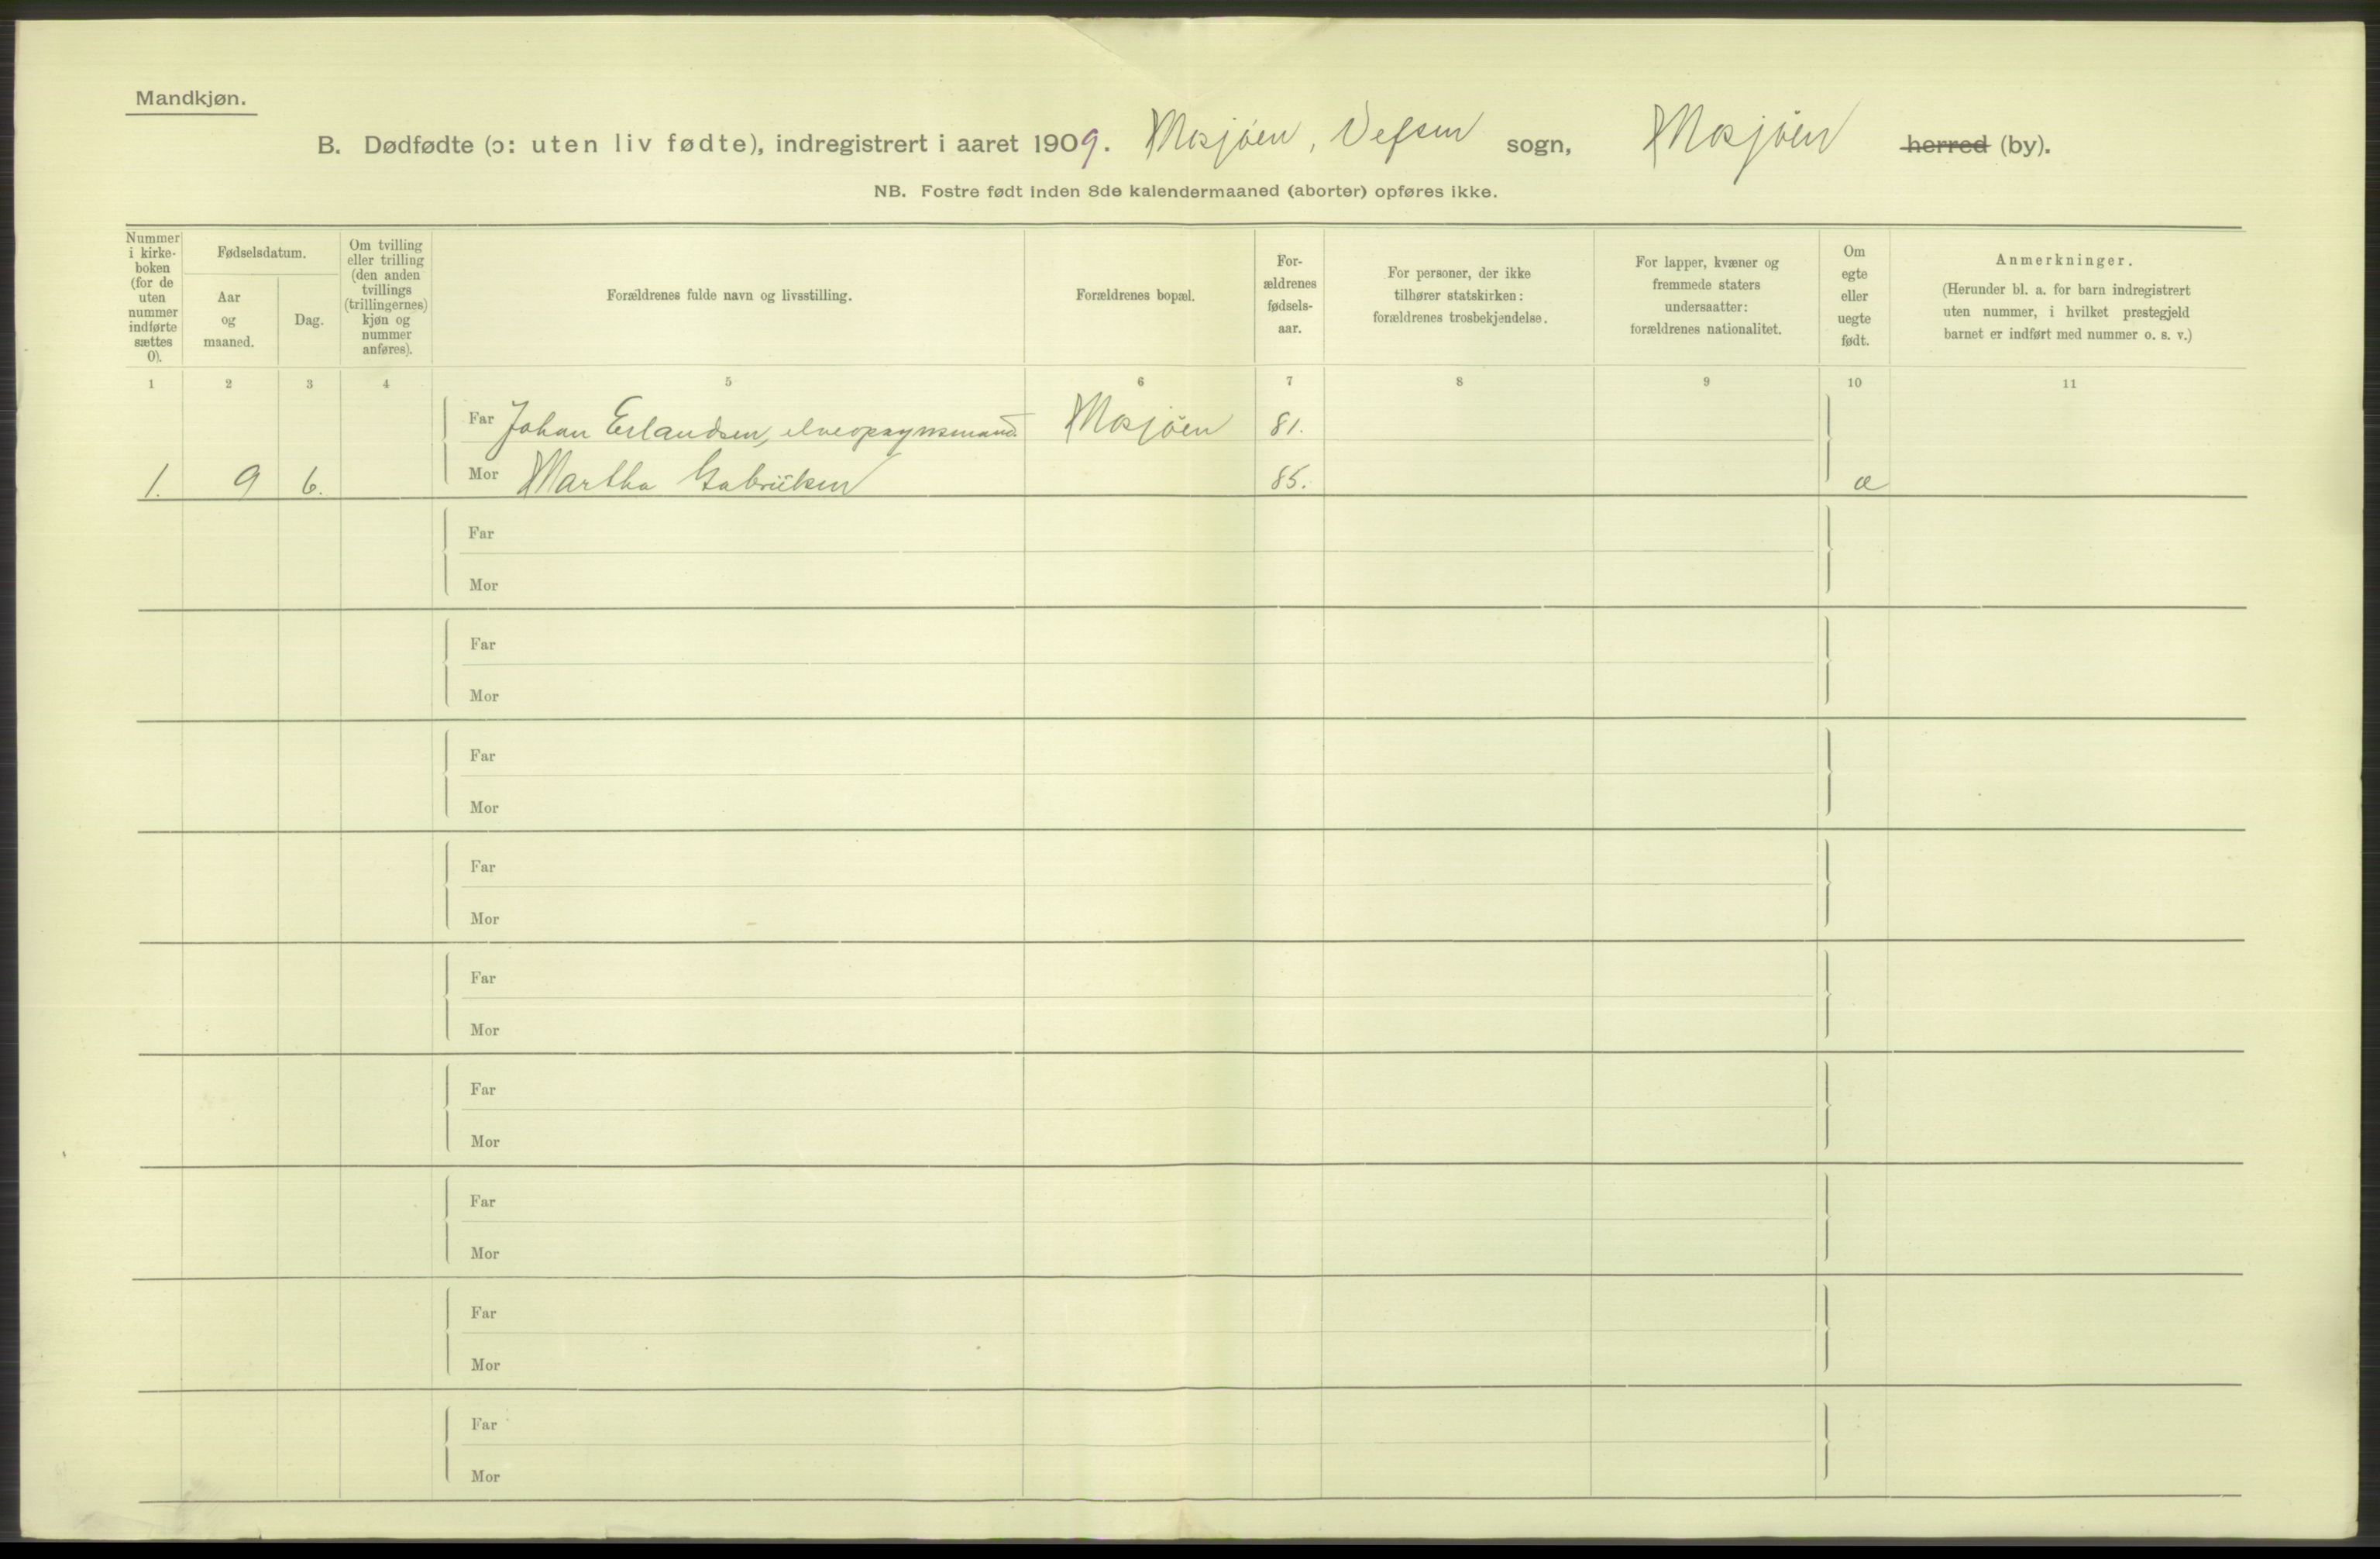 Mandkjøn.
B. Dødfødte (ɔ: uten liv fødte), indregistrert i aaret 1909. Mosjöen, Vefsen sogn, Mosjöen herred (by).
NB. Fostre født inden 8de kalendermaaned (aborter) opføres ikke.
Nummer i kirke- boken (for de uten nummer indførte sættes 0).
Fødselsdatum.
Aar og maaned.
Dag.
Om tvilling eller trilling (den anden tvillings (trillingernes) kjøn og nummer anføres).
Forældrenes fulde navn og livsstilling.
Forældrenes bopæl.
For- ældrenes fødsels- aar.
For personer, der ikke tilhører statskirken: forældrenes trosbekjendelse.
For lapper, kvæner og fremmede staters undersaatter: forældrenes nationalitet.
Om egte eller uegte født.
Anmerkninger.
(Herunder bl. a. for barn indregistrert uten nummer, i hvilket prestegjeld barnet er indført med nummer o. s. v.)
1 2 3 4 5 6 7 8 9 10 11
Far Johan Erlandsen, elveopsynsmand. Mosjöen 81.
1. 9 6. Mor Martha Gabrielsen 85. æ
Far
Mor
Far
Mor
Far
Mor
Far
Mor
Far
Mor
Far
Mor
Far
Mor
Far
Mor
Far
Mor